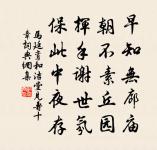 早知無廊廟
朝不素丘園
揮手謝世氛
保此中夜存
馬廷鸞和洁堂見壽十
章詞典網集